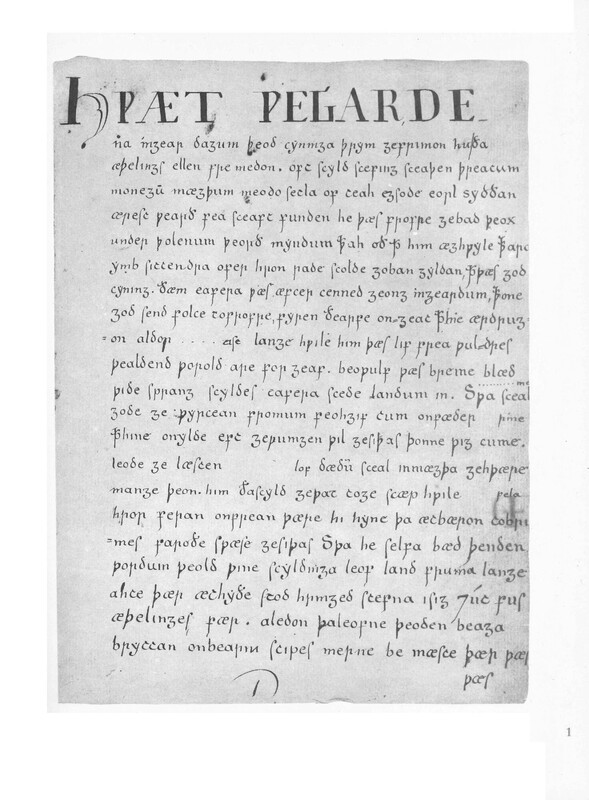 HǷÆT ǷEGARDE
na ingear dagum þeod cyninga þrym gefrunon huða
æþelingas ellen fremedon. oft scyld scefing sceaþen þreatum
monegū mægþum meodo setla of teah egsode eorl syððan
ærest ƿearð fea sceaft funden he þæs frofre gebad ƿeox
under ƿolcnum ƿeorð myndum þah oð ꝥ him æghƿylc þara
ymb sittendra ofer hron rade scolde goban gyldan, ꝥ ƿæs god
cyning. ðæm eafera ƿæs æfter cenned geong ingeardum, þone
god send folce tofrofre, fyren ðearfe on-geat ꝥ hie ærdrug=
=on aldor . . . . . ase lange hƿile him þæs lif frea ƿuldres
ƿealdend ƿorold are for geaf. beoƿulf ƿæs breme blæd
ƿide sprang scyldes eafera scede landum in. Sƿa sceal
gode ge ƿyrcean fromum feohgif tum onfæder ƿine
ꝥ hine onylde eft geƿunigen ƿil gesiþas þonne ƿig cume.
leode ge læsten lof dædū sceal inmægþa gehƿære
mange þeon. him ðascyld geƿat toge scæp hƿile fela
hror feran onfrean ƿære hi hyne þa ætbæron tobri
=mes faroðe sƿæse gesiþas Sƿa he selfa bæd þenden
ƿordum ƿeold ƿine scyldinga leof land fruma lange
ahte þær æthyðe stod hringed stefna isig ⁊ut fus
æþelinges fær. aledon þaleofne þeoden beaga
bryttan onbearm scipes mærne be mæste þær ƿæs
ƿæs
1